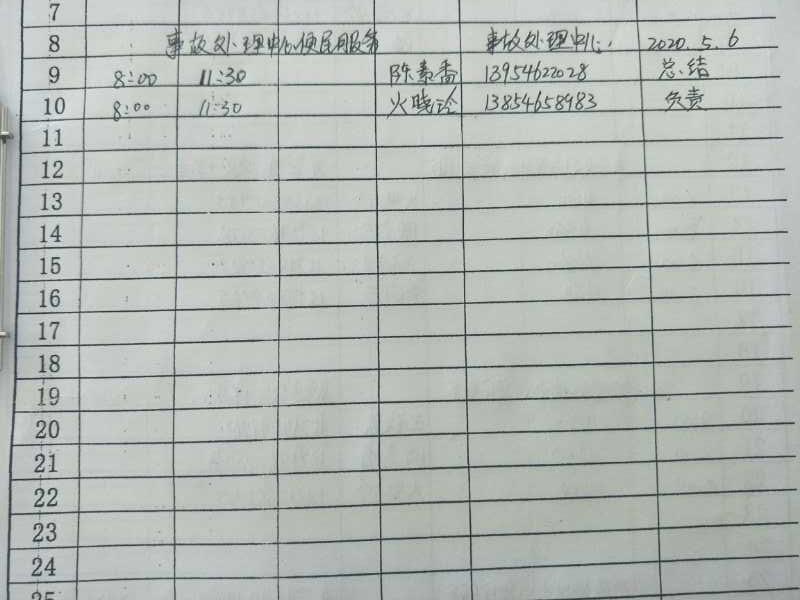 7
8 事故处理中心便民服务 事故处理中心 2020.5.6
9 8:00 11:30 陈素香 13954622028 总结
10 8:00 11:30 火晓玲 13854658983 负责
11
12
13
14
15
16
17
18
19
20
21
22
23
24
25